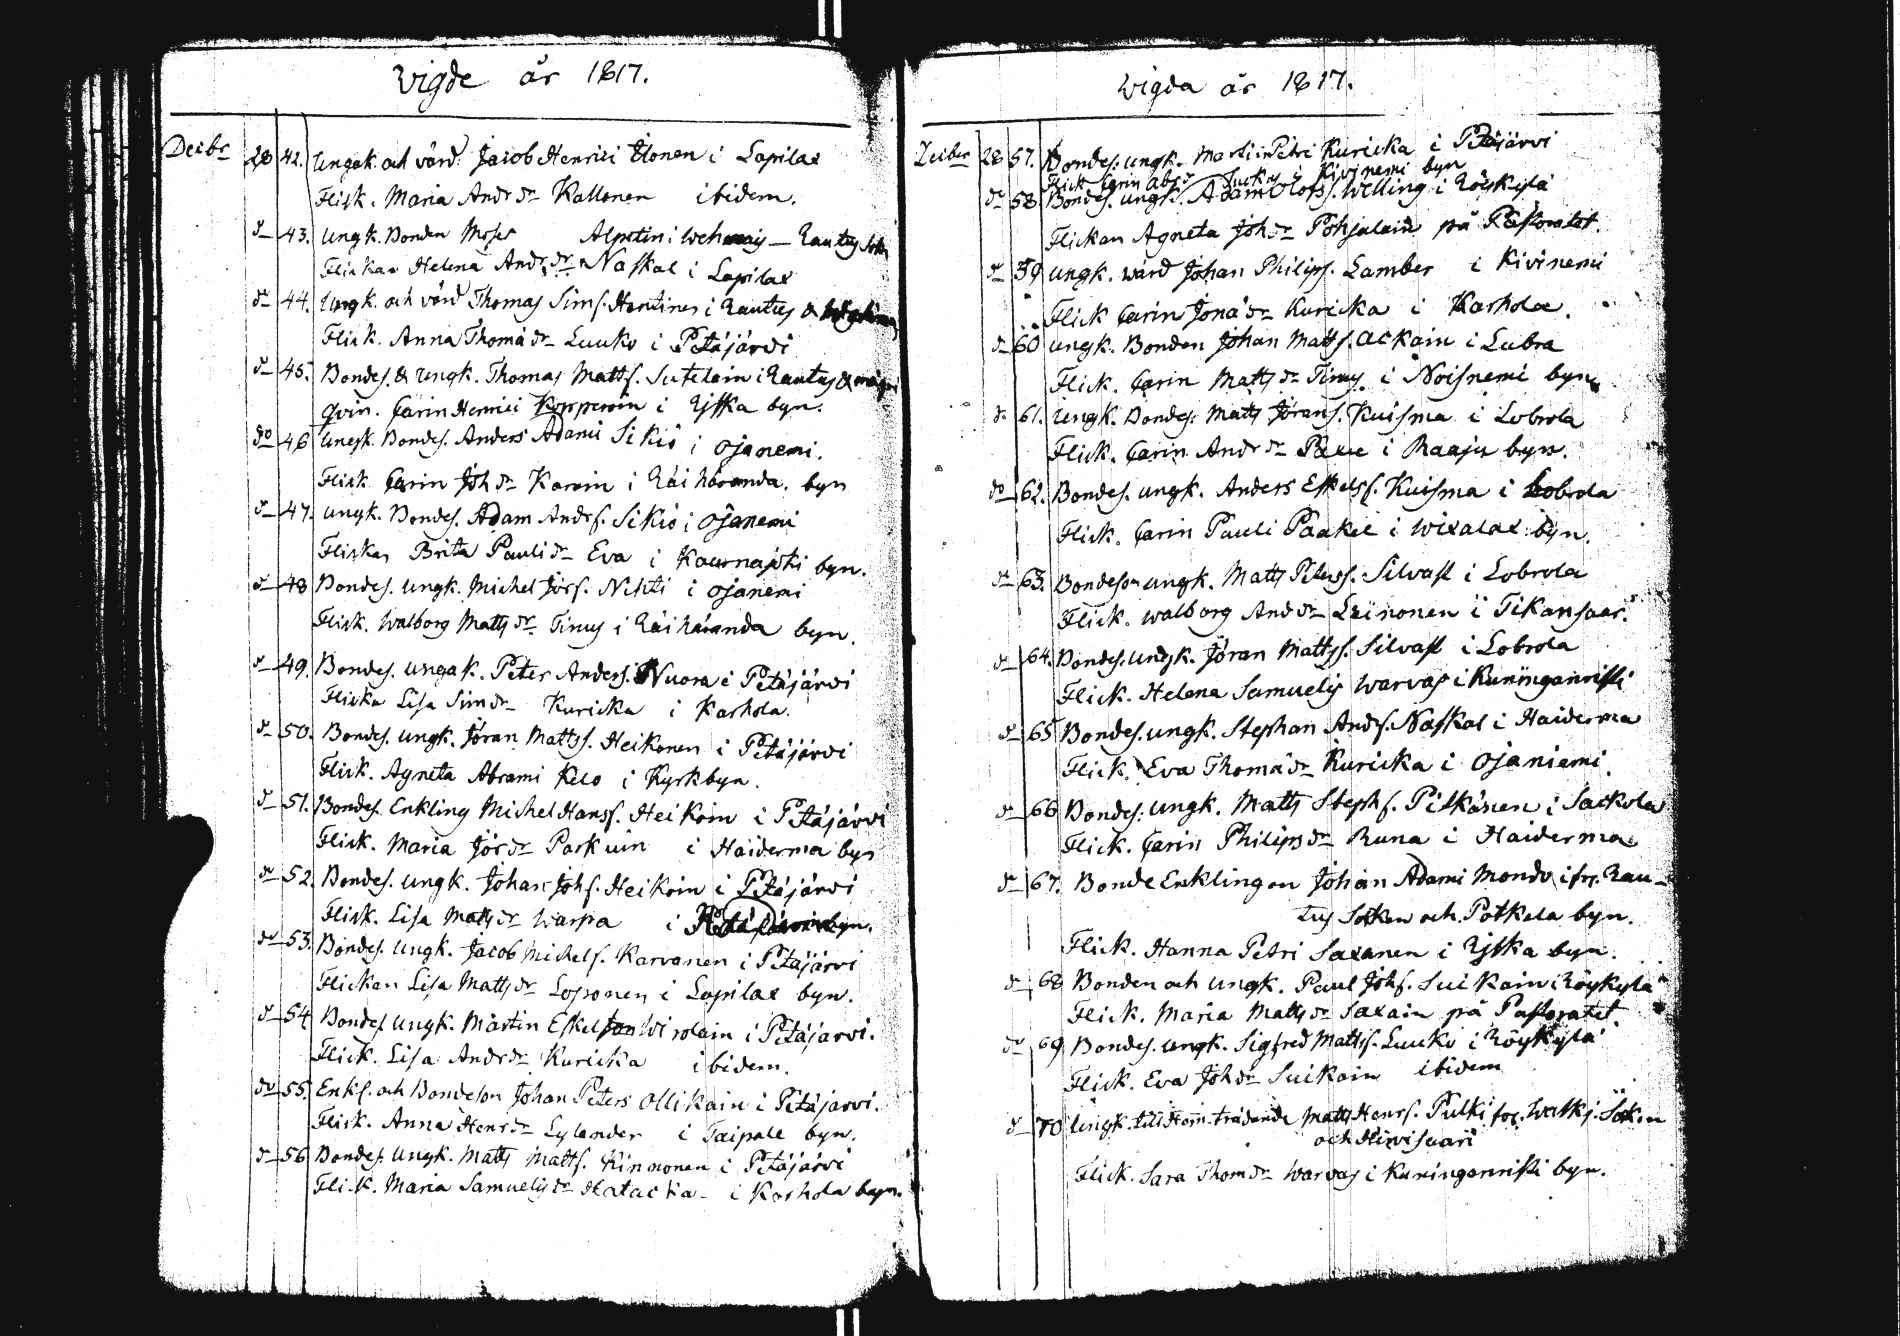 Wigde år 1817.
Decibr 28 42. Ungak. och värd. Jacob Henrici Ilonen i Lapilax
Flick. Maria Andr dr Kallonen ibidem.
d 43. Ungk. Bonden Moses Alpetin i Weh — Rautus Sokn
Flickan Helena Andr dr Naskal i Lapilax
do 44. Ungk. och värd Thomas Sims. Hentinen i Rautus &
Flick. Anna Thomä dr Luuko i Petäjärvi
d 45. Bondes. & Ungk. Thomas Matts. Sutelain i Rautus &
Qvin. Carin Henrici Kopperoin i Rjska byn.
do 46 Ungk. Bondes. Anders Adami Sikiö i Ojanemi.
Flick Carin Joh dr Karvin i Räihäranda. byn
d 47. Ungk. Bondes. Adam Andrs. Sikiö i Ojanemi
Flickan Brita Pauli dr Eva i Kaurnajoki byn.
d 48 Bondes. Ungk. Michel Jörs. Nikti i Ojanemi
Flick. Walborg Matts dr Timus i Räihäranda byn.
d 49. Bondes. Ungak. Peter Anders. Nuora i Petäjärvi
Flicka Lisa Sim dr Kuricka i Karhola.
d 50. Bondes. Ungk. Jöran Mattss. Heikonen i Petäjärvi
Flick. Agneta Abrami Kelo i Kyrkbyn.
d 51. Bondes. Enkling Michel Hanss. Heikoin i Petäjärvi
Flick. Maria Jör dr Parkuin i Haiderma byn
do 52. Bondes. Ungk. Johan Johs. Heikoin i Petäjärvi
Flick. Lisa Matts dr Warpa i Petäjärvi byn.
do 53. Bondes. Ungk. Jacob Michels. Karvanen i Petäjärvi
Flickan Lisa Matts dr Loponen i Lapilax byn.
d 54 Bondes. Ungk. Mårtin Eskelson Wirolain i Petäjärvi.
Flick. Lisa Andr dr Kuricka ibidem.
do 55. Enkl. och Bondeson Johan Peters Ollikain i Petäjarvi.
Flick. Anna Henr dr Lylander i Taipale byn.
d 56 Bondes. Ungk. Matts Matts. Kinnonen i Petäjärvi
Flick. Maria Samuelis dr Hatacka i Karhola byn.
Wigda år 1817.
Deciber 28 57. Bondes. ungk. Martin Petri Kuricka i Petäjärvi
Flick Carin Abr dr i Kivinemi byn
do 58. Bondes. ungk. Adam Olofs. Welling i Röykylä
Flickan Agneta Joh dr Pohjalain på Pastoratet.
d 59 Ungk. wärd Johan Philips. Lamber i Kivinemi
Flick Carin Jona dr Kuricka i Karhola.
d 60 Ungk. Bonden Johan Matts. Ackain i Lubra
Flick. Carin Matts dr Timus i Noisnemi byn
d 61. Ungk. Bondes. Matts Jörans. Kuisma i Lobrola
Flick. Carin Andr dr Paxu i Raaju byn.
do 62. Bondes. ungk. Anders Eskels. Kuisma i Lobrola
Flick. Carin Pauli Paakel i Wixalax byn.
do 63. Bondeson ungk. Matts Peters. Silvast i Lobrola
Flick. Walborg And dr Leinonen i Tikansaar.
d 64. Bondes. Ungk. Jöran Mattss. Silvast i Lobrola
Flick. Helena Samuelis Warvas i Kuninganristi
d 65 Bondes. ungk. Stephan Ands. Naskal i Haiderma
Flick. Eva Thomä dr Kuricka i Ojaniemi.
d 66 Bondes. Ungk. Matts Stephs. Pitkänen i Sackola
Flick. Carin Philips dr Runa i Haiderma
d 67. Bonde Enklingen Johan Adami Mondo ifr. Rau-
tus Sokken och Potkela byn.
Flick. Hanna Petri Saxanen i Rjska byn.
d 68 Bonden och Ungk. Paul Johs. Suikain i Röykylä
Flick. Maria Matts dr Saxain på Pastoratet.
do 69 Bondes. ungk. Sigfred Matts. Luuko i Röykylä
Flick. Eva Joh dr Suikain ibidem
d 70 Ungk. till Hem-trädande Matts Henrs. Pulki for. Walkj. Sokn
och Hirvisaari
Flick. Sara Thom dr Warvas i Kuninganristi byn.